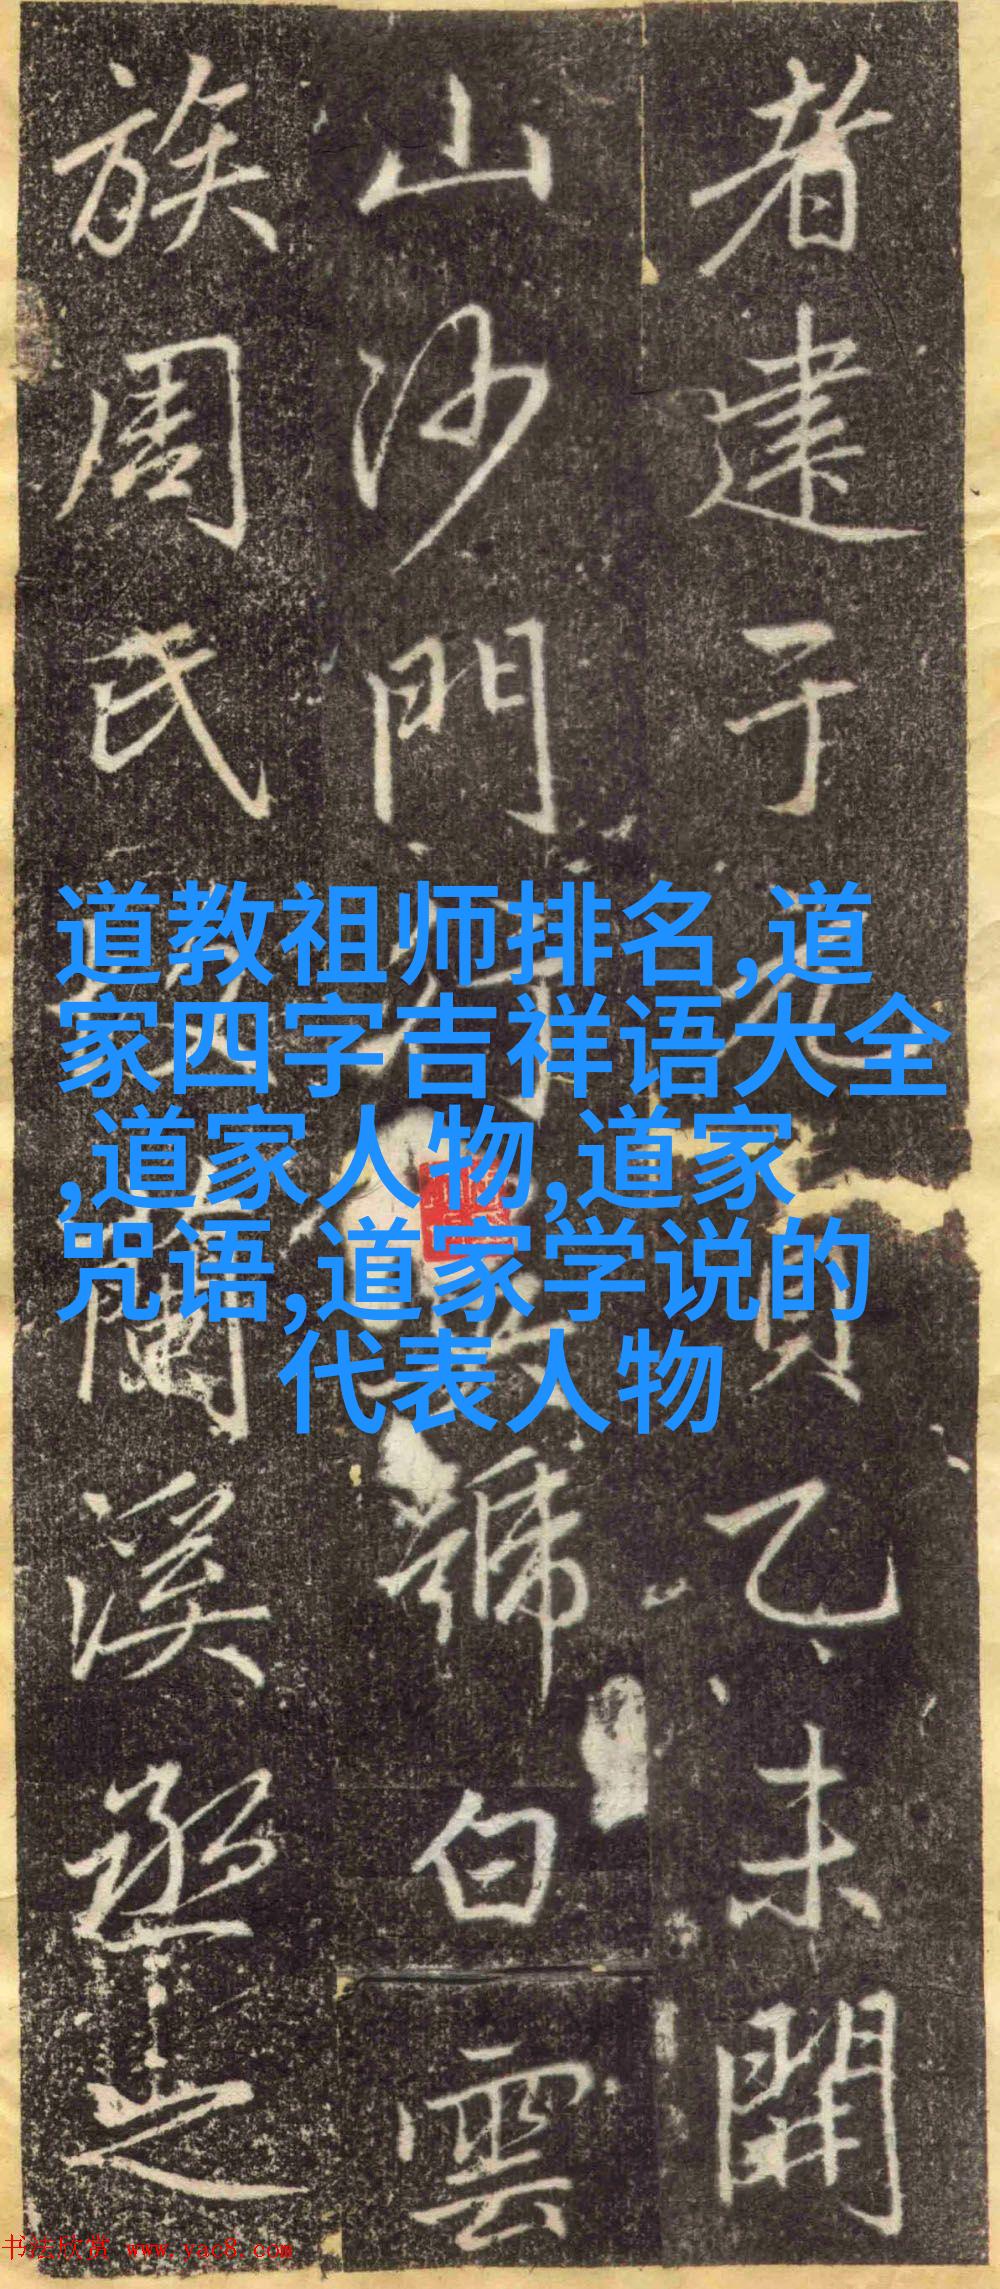 者建于元貞乙未開
山沙門行號白雲
族周氏蘭溪丞之
道教祖师排名,道
家四字吉祥语大全
,道家人物,道家
咒语,道家学说的
代表人物
书法欣赏 www.yac8.com